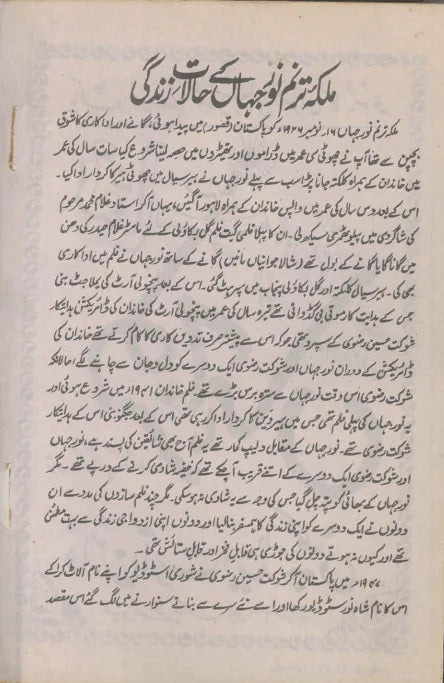 ملکہ ترنم نور جہاں کے حالات زندگی
ملکہ ترنم نور جہاں ۱۶ نومبر ۱۹۲۶ء کو پاکستان (قصور) میں پیدا ہوئی، گانے اور اداکاری کا شوق
بچپن سے تھا آپ نے چھوٹی عمر میں ڈراموں اور تھیٹروں میں حصہ لینا شروع کیا سات سال کی عمر
میں خاندان کے ہمراہ کلکتہ جانا پڑا سب سے پہلے نور جہاں نے ہیر سیال میں چھوٹی ہیر کا کردار ادا کیا۔
اس کے بعد دس سال کی عمر میں واپس خاندان کے ہمراہ لاہور آ گئیں، یہاں آکر استاد غلام محمد مرحوم
کی شاگردی میں سیکھ لی۔ ان کا پہلا فلمی گیت فلم گل بکاؤلی کے لئے ماسٹر غلام حیدر کی دھن
میں گانا گایا گانے کے بول تھے (شالا جوانیاں مانیں) گانے کے ساتھ نور جہاں نے فلم میں اداکاری
بھی کی۔ ہیر سیال کلکتہ اور گل بکاؤلی پنجاب میں سپر ہٹ گئی۔ اس کے بعد پنچولی آرٹ کی یملا جٹ بنی
جس کے ہدایت کار موتی بی گڈوانی تھے تیرہ سال کی عمر میں پنچولی آرٹ کی خاندان کی ڈائریکشن ہدایتکار
شوکت حسین رضوی کے سپرد تھی جو کہ اس سے پیشتر صرف تدوین کاری کا کام کرتے تھے خاندان کی
ڈائریکشن کے دوران نور جہاں اور شوکت رضوی ایک دوسرے کو دل و جان سے چاہنے لگے، حالانکہ
شوکت رضوی اس وقت نور جہاں سے سترہ برس بڑے تھے۔ فلم خاندان ۱۹۴۱ء میں شروع ہوئی اور
یہ نور جہاں کی پہلی فلم تھی جس میں ہیروئین کا کردار ادا کر رہی تھی اس کے بعد جگنو بنی اس کے ہدایتکار
شوکت رضوی تھے۔ نور جہاں کے مقابل دلیپ کمار تھے یہ فلم آج بھی شائقین کی پسند ہے، نور جہاں
اور شوکت رضوی ایک دوسرے کے اتنے قریب آ چکے تھے کہ خفیہ شادی کرنے کے درپے تھے۔ مگر
نور جہاں کے بھائی کو پتہ چل گیا جس کی وجہ سے یہ شادی نہ ہو سکی۔ مگر چند فلم سازوں کی مدد سے ان
دونوں نے ایک دوسرے کو اپنی زندگی کا ہمسفر بنا لیا اور دونوں اپنی ازدواجی زندگی سے بہت مطمئن
تھے اور کیوں نہ ہوتے دونوں کی جوڑی ہی قابل فخر اور قابل ستائش تھی۔
۱۹۴۷ء میں پاکستان آکر شوکت حسین رضوی نے شوری اسٹوڈیو کو اپنے نام الاٹ کرا کے
اس کا نام شاہ نور سٹوڈیو رکھا اور اسے نئے سرے سے بنانے سنوارنے میں لگ گئے اس مقصد